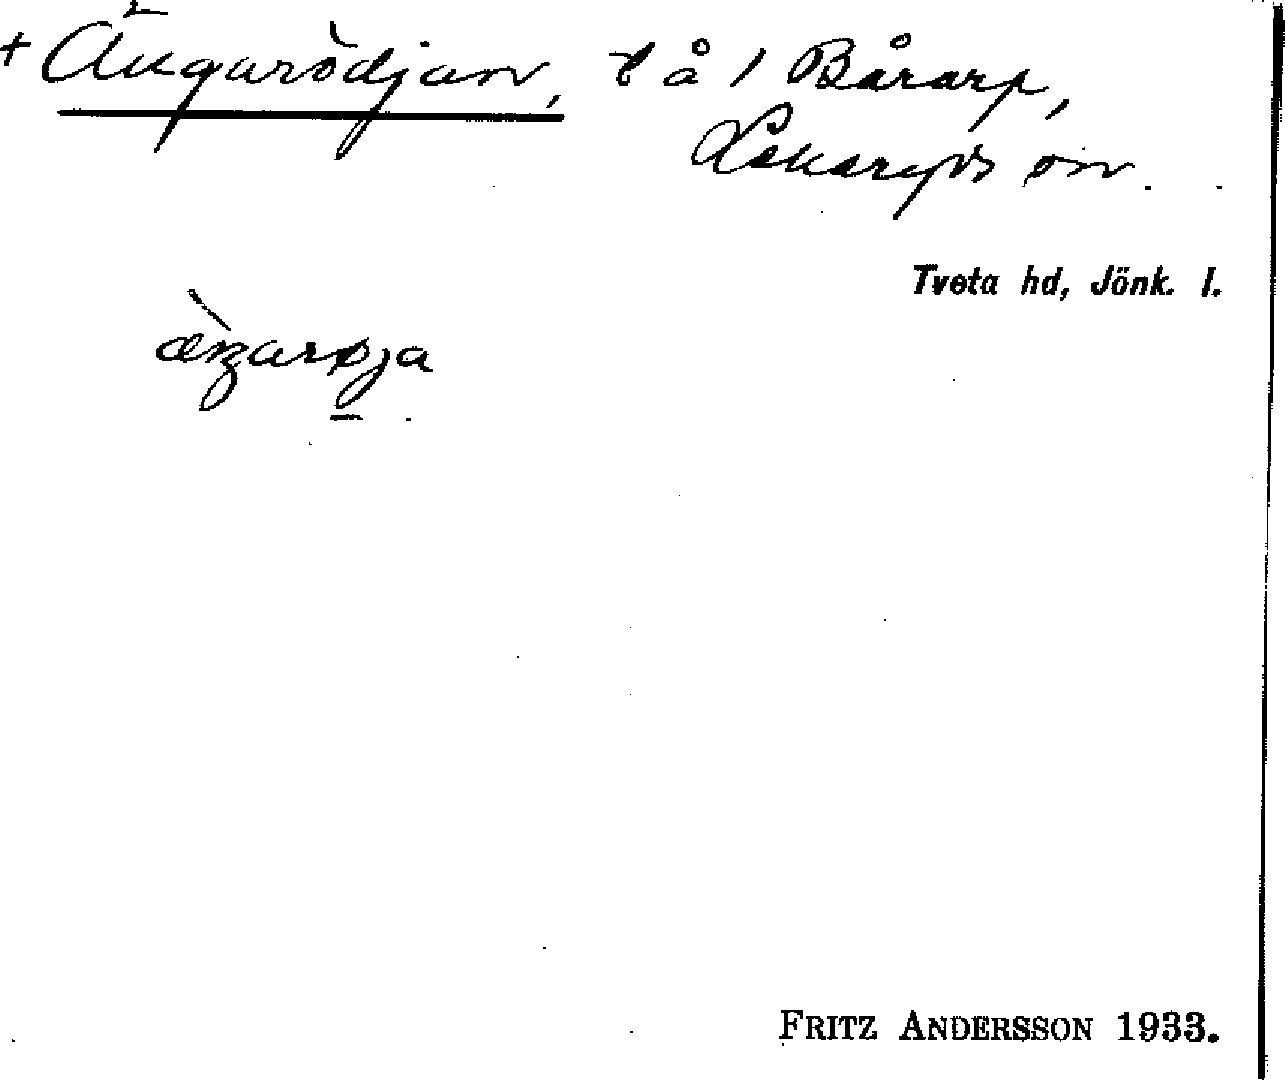 + Ängarödjan, t å 1 Bårarp,
Lekaryds sn.
Tveta hd, Jönk. l.
æ̀ŋarøja
FRITZ ANDERSSON 1933.